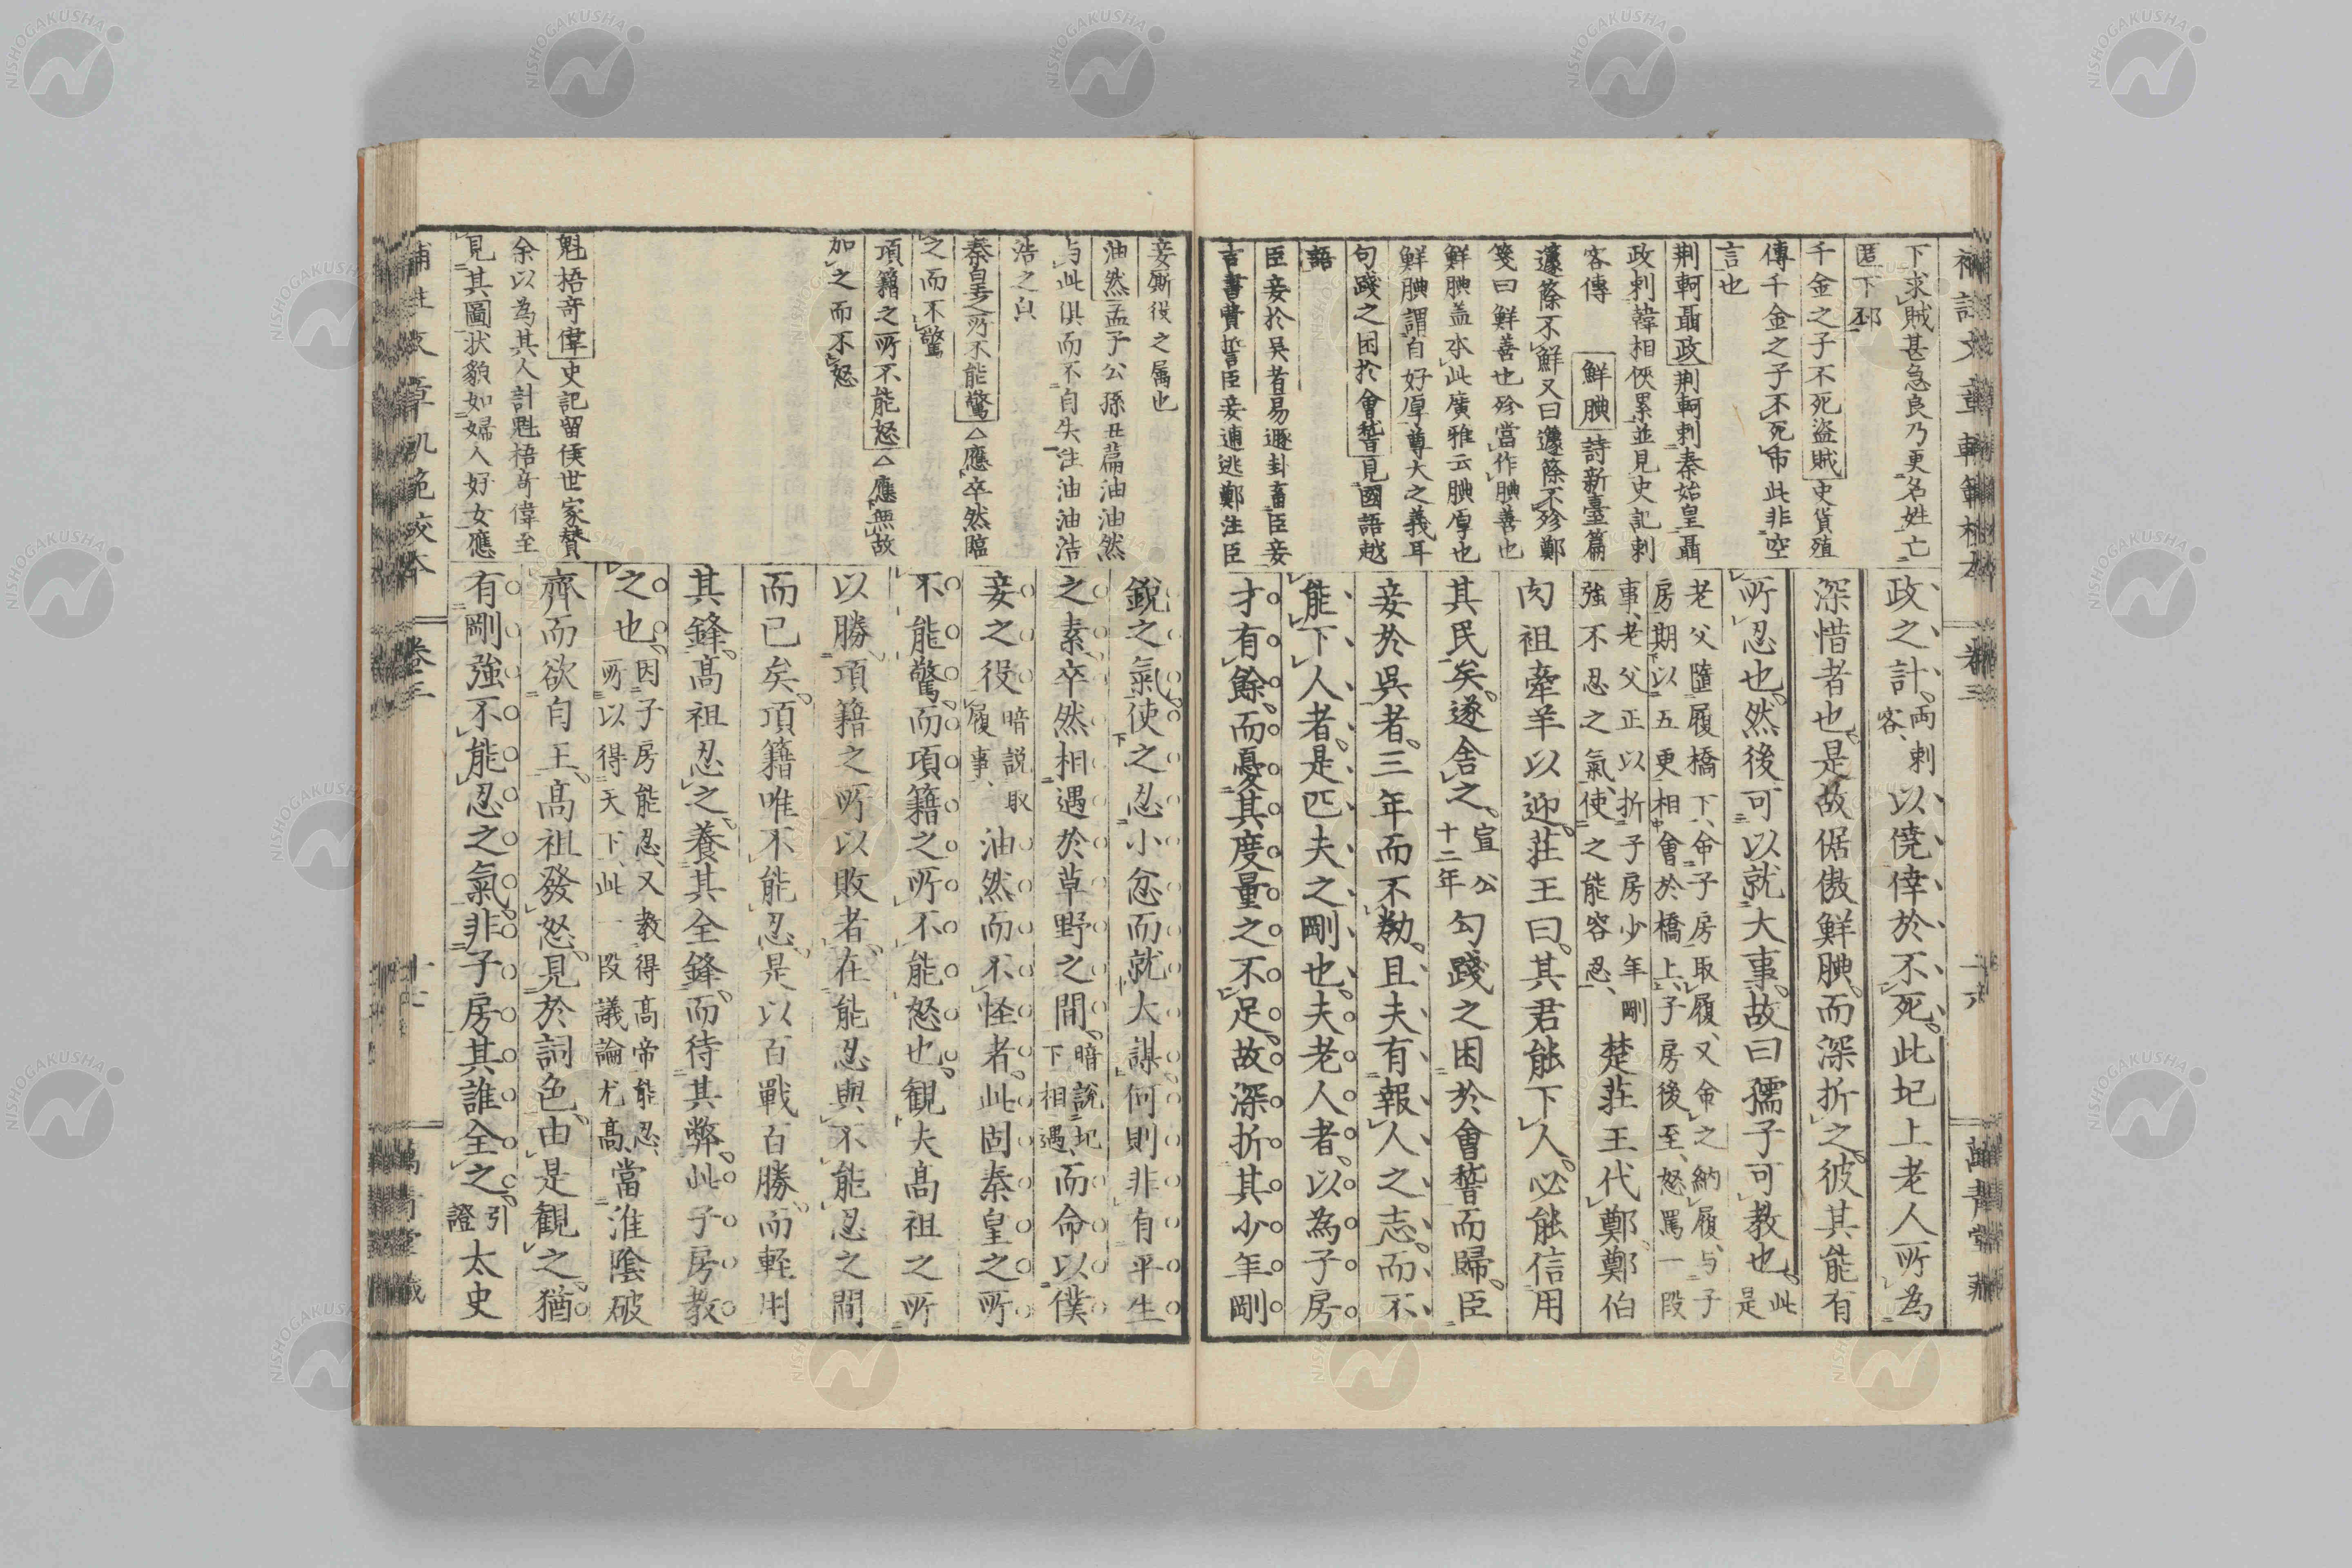 下求賊甚急良乃更名姓亡
匿下邳
千金之子不死盜賊史貨殖
傳千金之子不死市此非空
言也
荆軻聶政荆軻刺秦始皇聶
政刺韓相俠累並見史記刺
客傳　鮮腆詩新臺篇
籧篨不鮮又曰籧篨不殄鄭
箋曰鮮善也殄當作腆善也
鮮腆蓋本此廣雅云腆厚也
鮮腆謂自好厚尊大之義耳
句踐之困於會稽見國語越
語
臣妾於吳者易遯卦畜臣妾
吉書費誓臣妾逋逃鄭注臣
政之計。兩刺客、以僥倖於不死。此圯上老人所為
深惜者也。是故倨傲鮮腆。而深折之。彼其能有
所忍也。然後可以就大事。故曰孺子可教也。此是
老父隨履橋下、命子房取履、又命之納履、与子
房期以五更相會於橋上、子房後至、怒罵一段
事、老父正以折子房少年剛
強不忍之氣、使之能容忍、楚莊王代鄭。鄭伯
肉祖牽羊以迎。莊王曰。其君能下人。必能信用
其民矣。遂舍之。宣公十二年勾踐之困於會稽而歸。臣
妾於吳者。三年而不勌。且夫有報人之志。而不
能下人者。是匹夫之剛也。夫老人者。以為子房
才有餘。而憂其度量之不足。故深折其少年剛
妾廝役之属也
油然孟子公孫丑篇油油然
与此俱而不自失注油油浩
浩之皃
秦皇之所不能驚△應卒然臨
之而不驚
項籍之所不能怒△應無故
加之而不怒
魁梧奇偉史記留侯世家贊
余以為其人計魁梧奇偉至
見其圖狀貌如婦人好女應
銳之氣。使之忍小忿而就大謀。何則非有平生
之素。卒然相遇於草野之間。暗說圯下相遇、而命以僕
妾之役。暗說取履事、油然而不怪者。此固秦皇之所
不能驚。而項籍之所不能怒也。觀夫高祖之所
以勝。項籍之所以敗者。在能忍與不能忍之間
而已矣。項籍唯不能忍。是以百戰百勝。而輕用
其鋒。高祖忍之。養其全鋒。而待其弊。此子房教
之也。因子房能忍、又教得高帝能忍、所以得天下、此一段議論尤高、當淮陰破
齊而欲自王。高祖發怒。見於詞色。由是觀之。猶
有剛強不能忍之氣。非子房其誰全之。引證太史